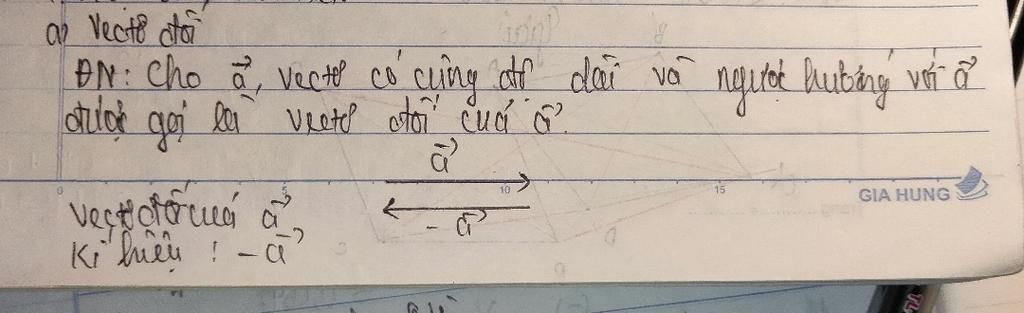 a) Vectơ đối
ĐN: Cho a⃗, vectơ có cùng độ dài và ngược hướng với a⃗
được gọi là vectơ đối của a⃗.
a⃗
0 5 10 15
GIA HUNG
Vectơ đối của a⃗
- a⃗
Kí hiệu : - a⃗